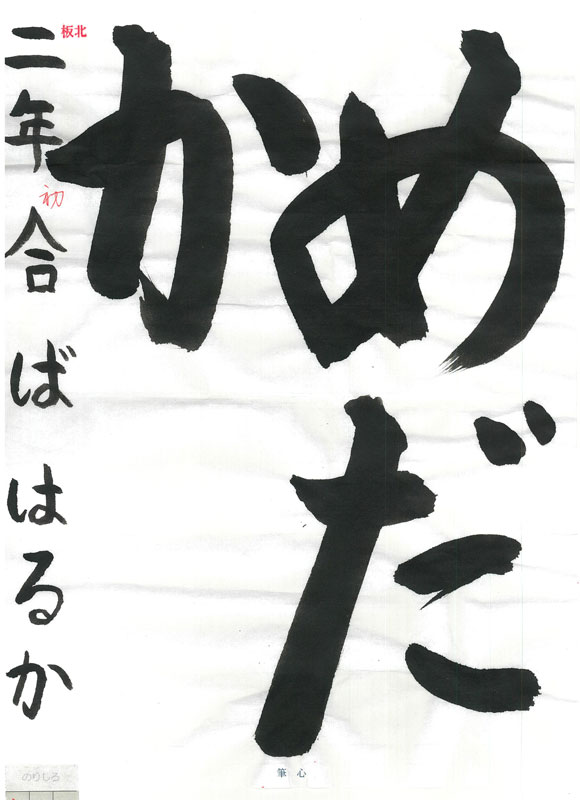 めだ
か
二年 合ば はるか
北板
初
筆心
のりしろ